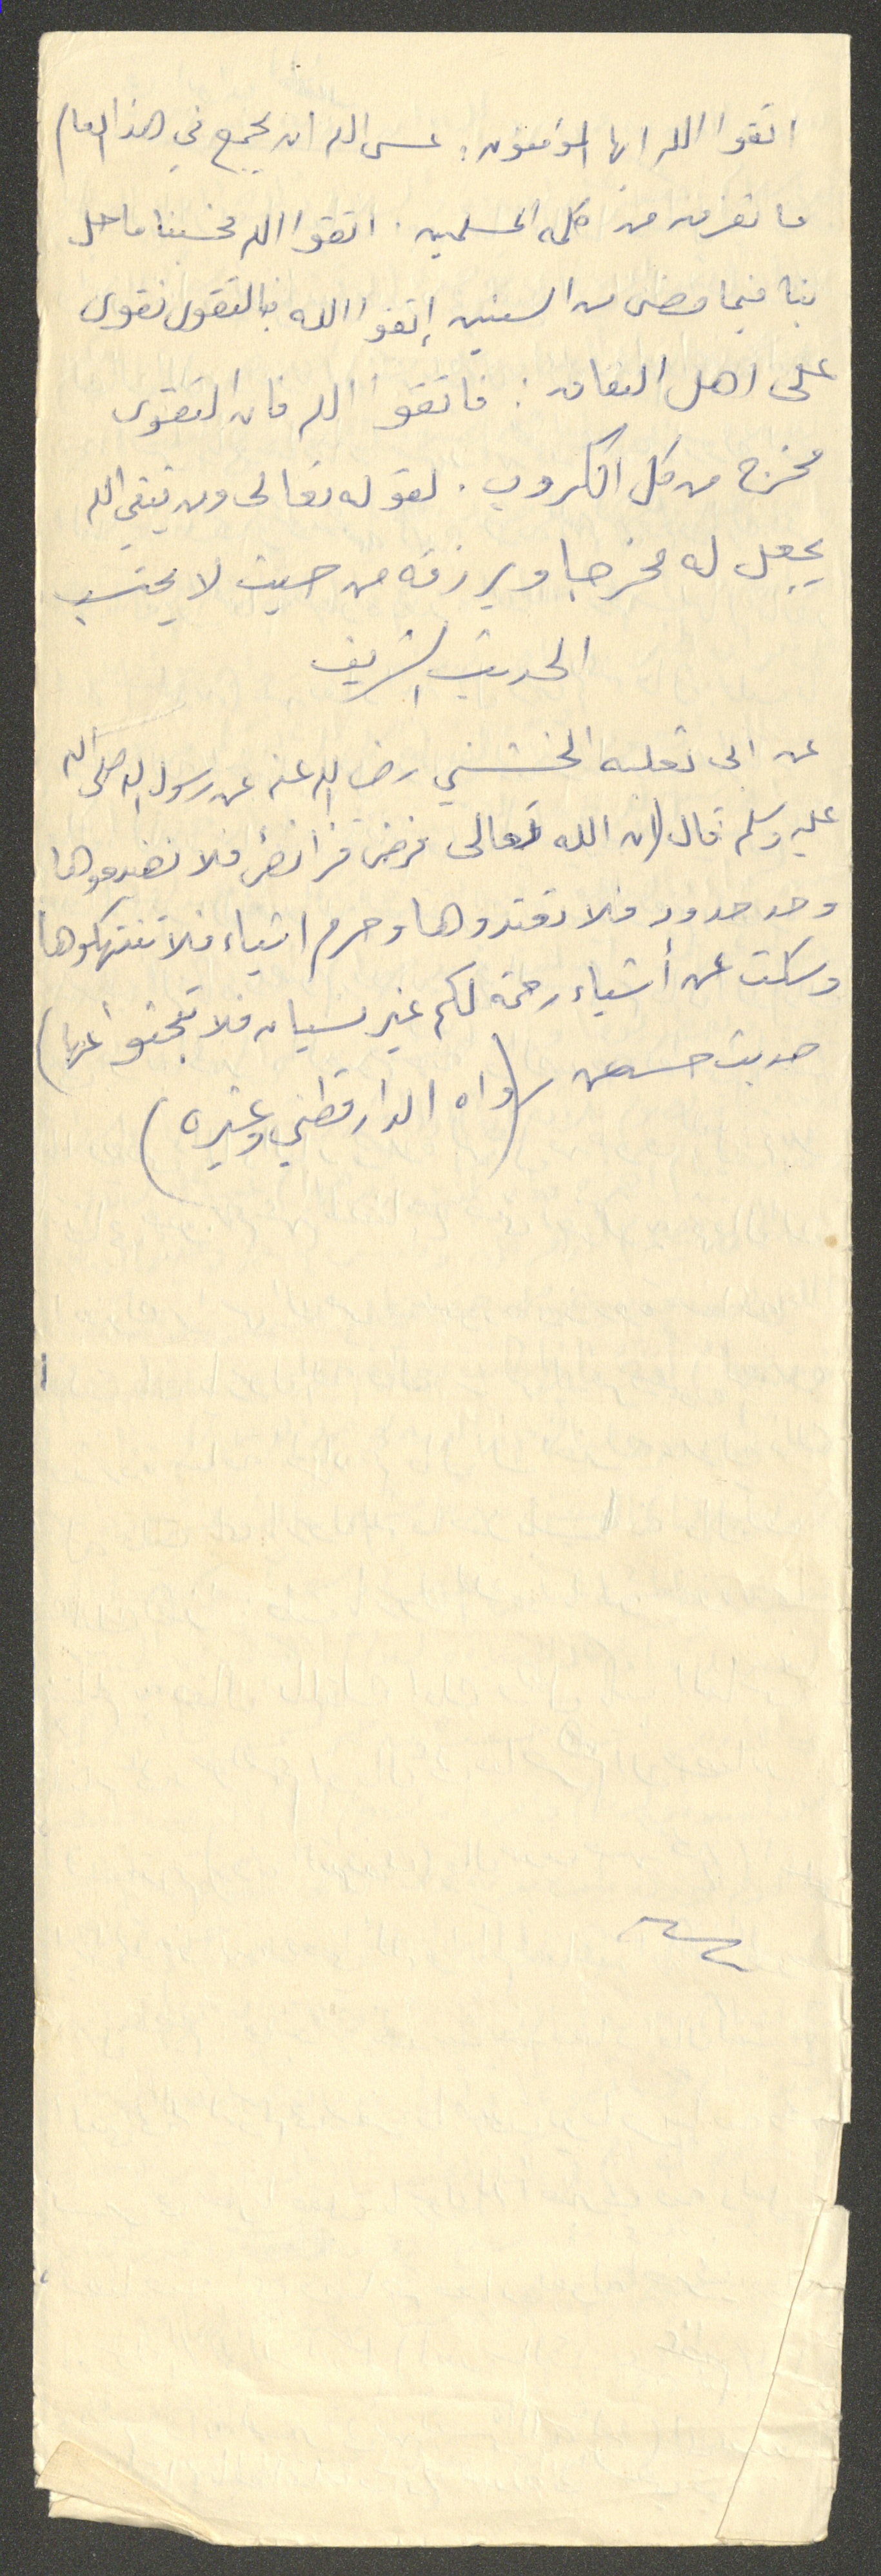 اتقوا الله ايها المؤمنون: عسى الله ان يجمع في هذا العام
ما تفرق من كلمة المسلمين. اتقوا الله فحسبنا ما حل
بنا فيما مضى من السنين إتقوا الله فبالتقوى نقوى
على اهل النفاق: فاتقوا الله فان التقوى
مخرج من كل الكروب. لقوله تعالى ومن يتقي الله
يجعل له مخرجا ويرزقه من حيث لا يحتسب
الحديث الشريف
عن ابى ثعلبه الخشني رضي الله عنه عن رسول الله صلى الله
عليه وسلم قال (ان الله تعالى فرض فرائض فلا تضيعوها
وحد حدود فلا تعتدوها وحرم اشياء فلا تنتهكوها
وسكت عن أشياء رحمة لكم غير نسيان فلا تبحثوا عنها)
حديث حسن (رواه الدارقطني وغيره)